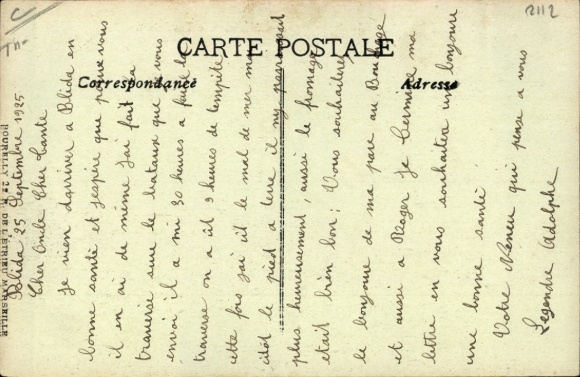 CARTE POSTALE
Correspondance
Adresse
2112
Blida 25 Septembre 1925
Cher Oncle Cher Tante
Je vien d'arriver a Blida en
bonne santé et j'espère que pour vous
il en ai de même j'ai fait la
traverse sur le bateaux que je vous
envoi il a mi 30 heures a faire la
traverse on a û 9 heures de tempête
cette fois j'ai û le mal de mer mai
citôt le pied a terre il ny
plus heureusement, aussi le fromage
etait bien bon; Vous souhaiterez
le bonjour de ma pare au
et aussi a Roger Je termine ma
lettre en vous souhaitan un bonjour
une bonne santé
Votre Neveu qui pense a vous
Legendre Adolphe